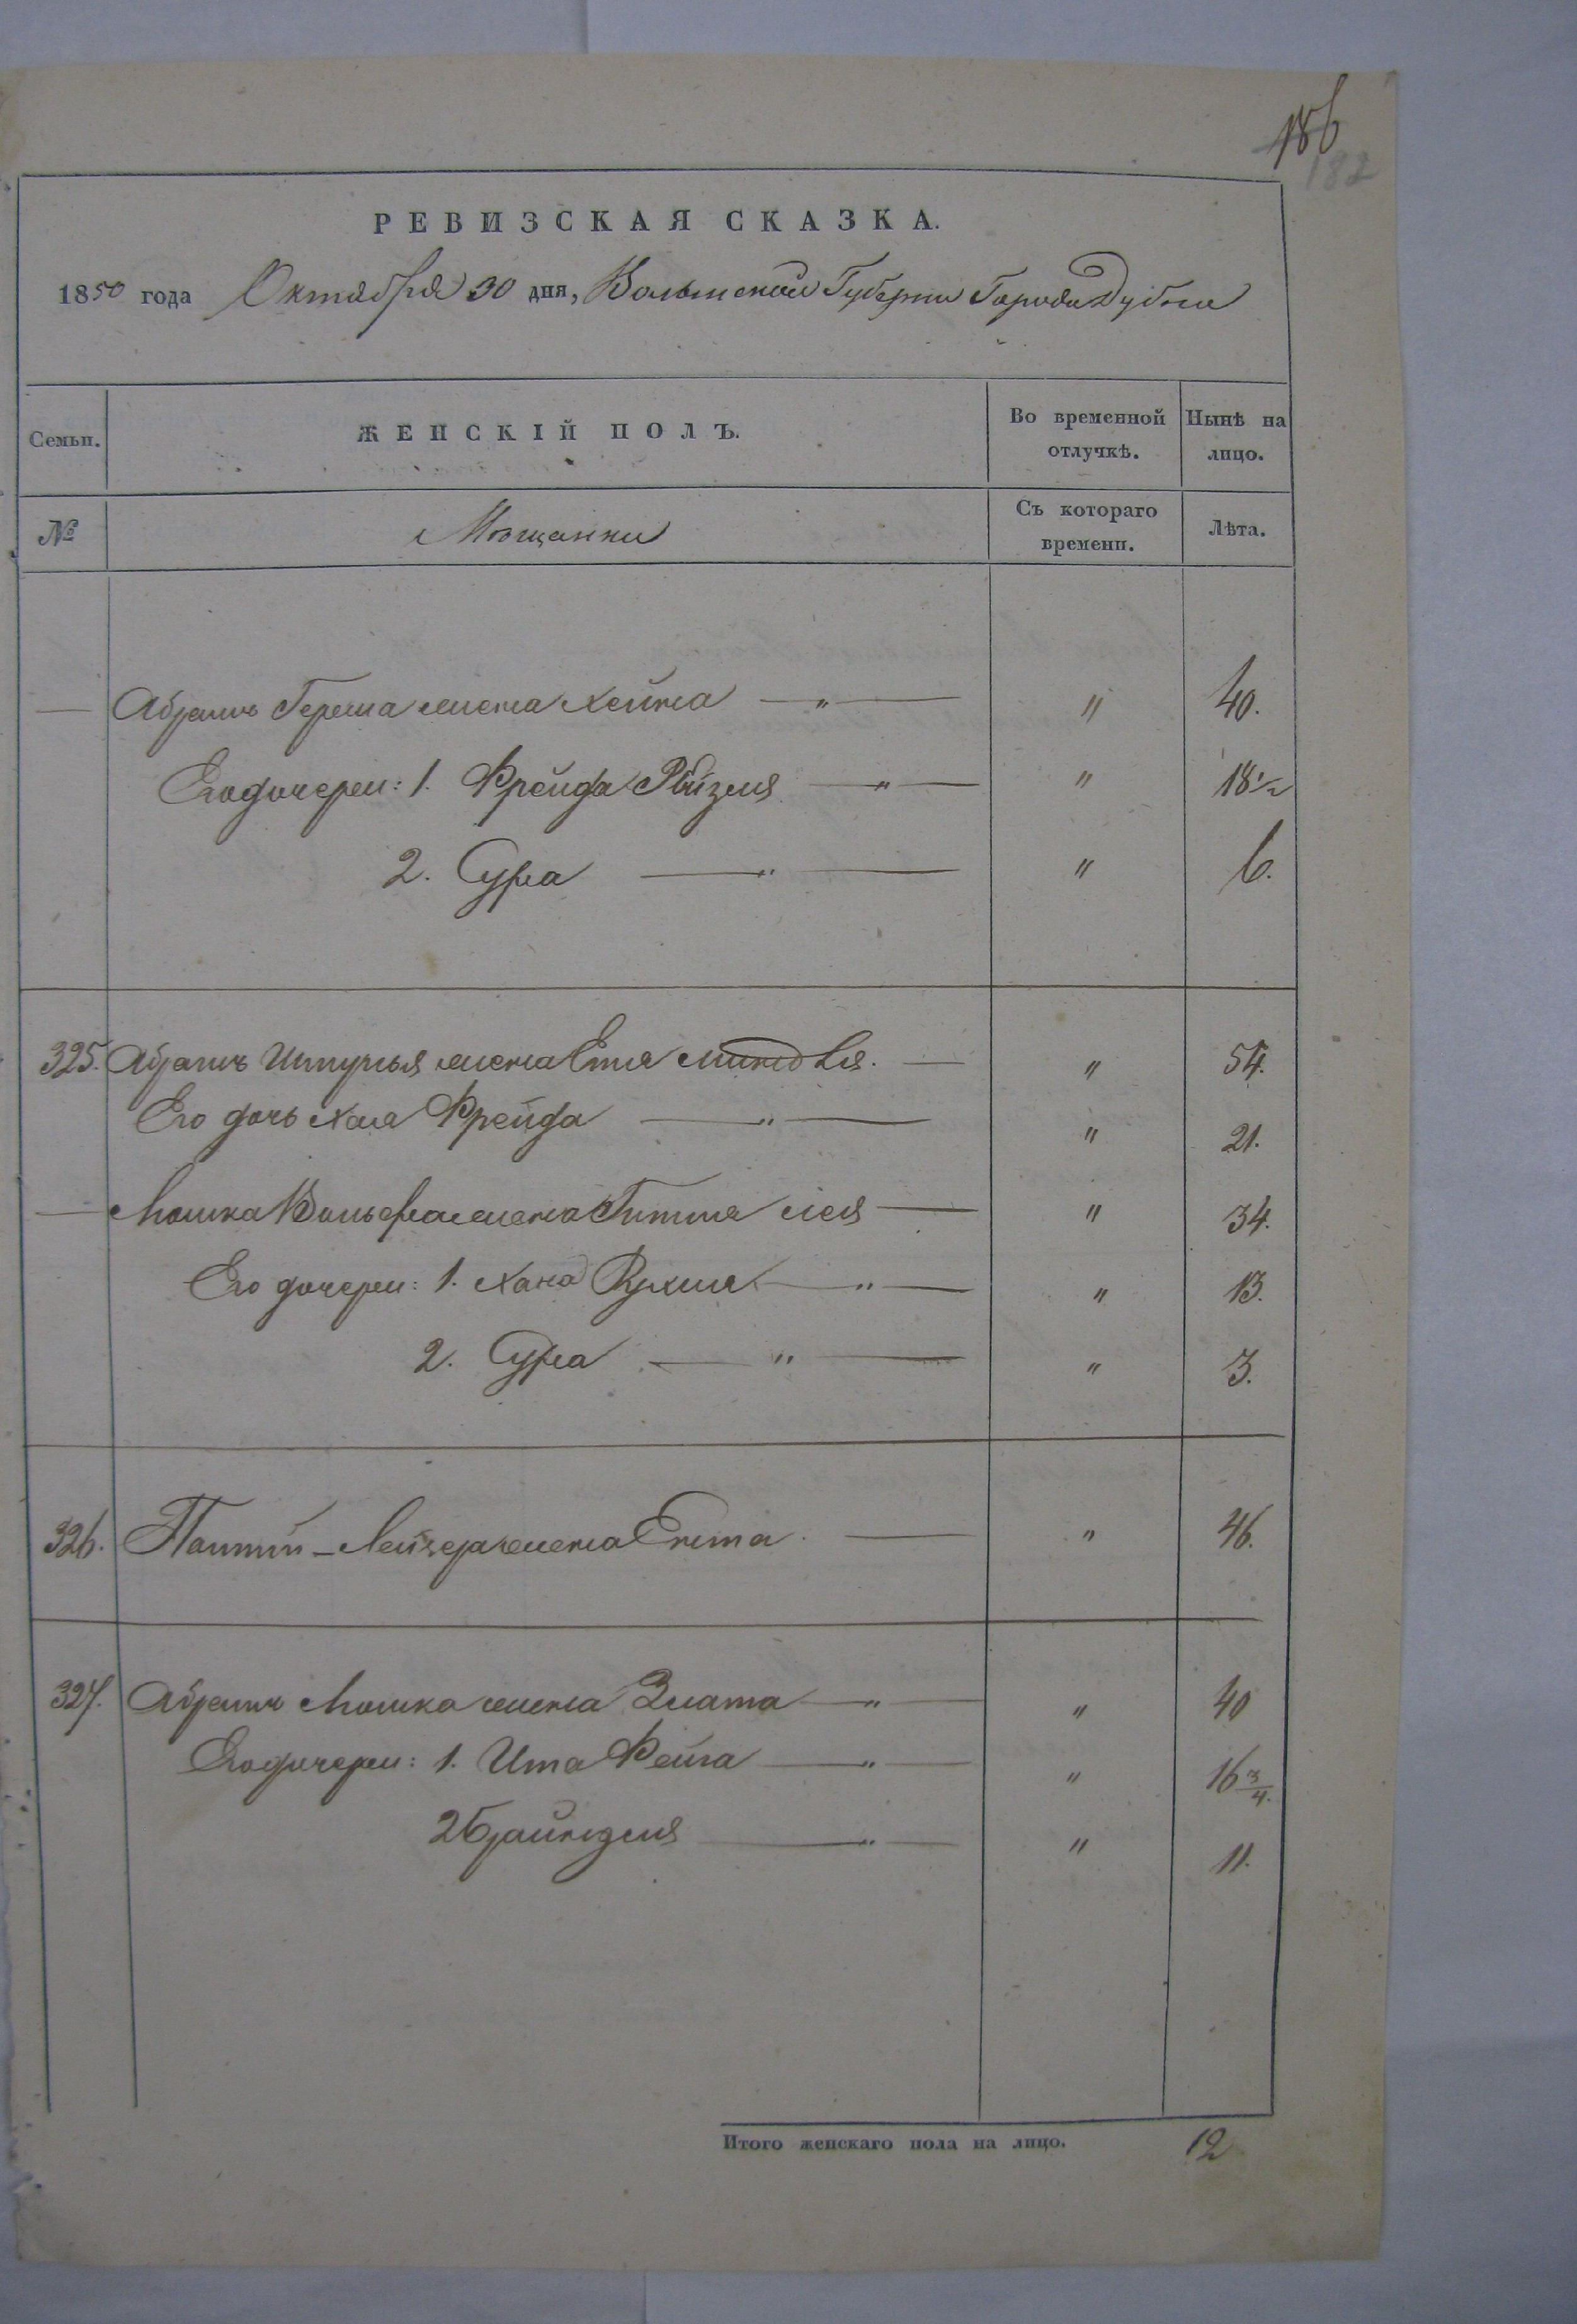 186
182
РЕВИЗСКАЯ СКАЗКА.
1850 года Октября 30 дня, Волынской Губернии Города Дубна
Семьи. ЖЕНСКІЙ ПОЛЪ. Во временной отлучкѣ. Нынѣ на лицо.
№ Мѣщанки Съ котораго времени. Лѣта.
— Абрамъ Герша жена Хейна — " — " 40.
Его дочери: 1. Фрейда Рейзля — " — " 18 1/2
2. Сура — " — " 6.
325. Абрамъ жена Етя — " 54.
Его дочь Хая Фрейда — " — " 21.
— Мошка Вольфа жена Гитля Лея — " 34.
Его дочери: 1. Хана Рухля — " — " 13.
2. Сура — " — " 3.
326. Лейзера жена Ента. — " 46.
327. Абрамъ Мошка жена Злата — " — " 40
Его дочери: 1. Ита Фейга — " — " 16 3/4.
2 Брайндля — " — " 11.
Итого женскаго пола на лицо. 12